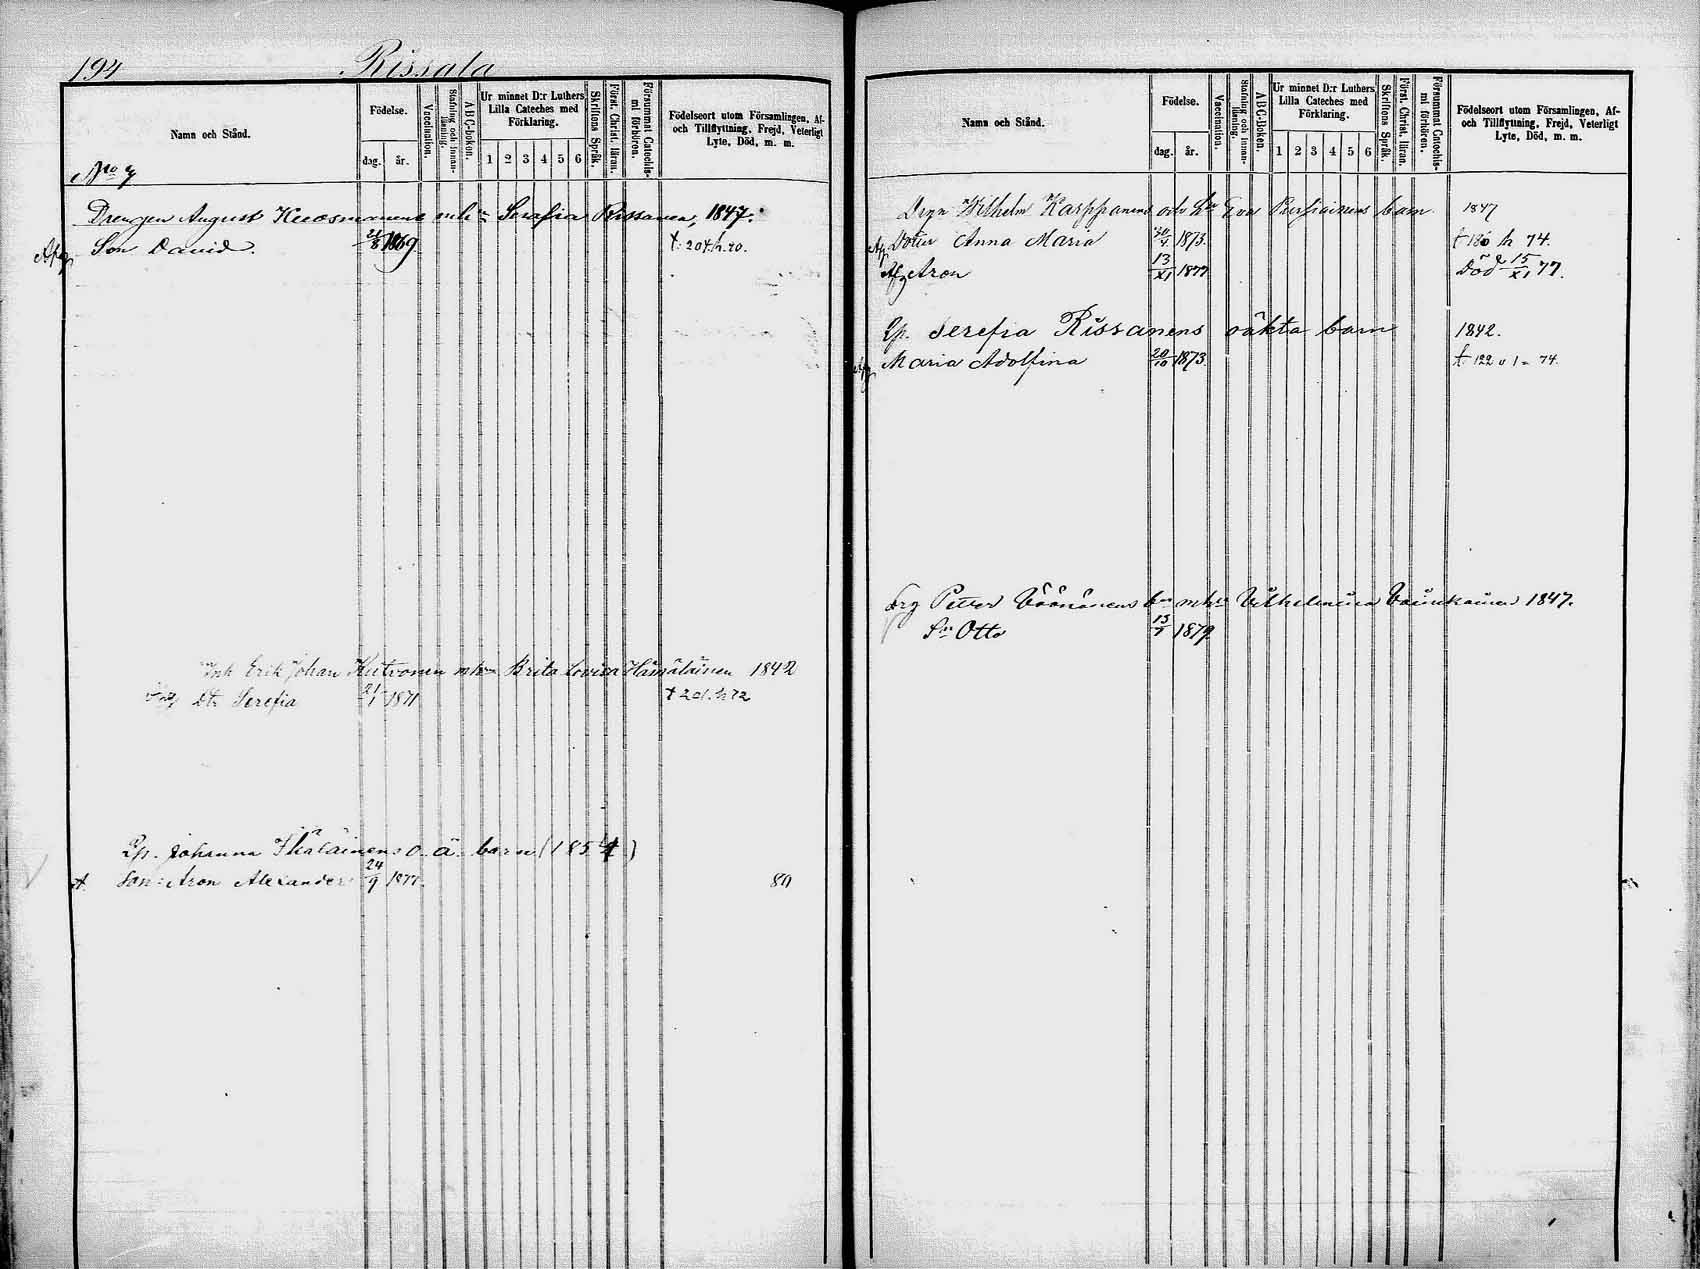 194 Rissala
Namn och Stånd.
Födelse.
dag. år.
Vaccination.
Stafning och Innan-läsning.
ABC-boken.
Ur minnet D:r Luthers Lilla Cateches med Förklaring.
1 2 3 4 5 6
Skriftens Språk.
Först. Christ. läran.
Försummat Catechis-mi förhören.
Födelseort utom Församlingen, Af- och Tillflyttning, Frejd, Veterligt Lyte, Död, m. m.
No 7
Drengen August Kuosmanens mh:n Serafia Rissanen, 1847.
Son David. 1869 †. 204. h. 70.
Inh Erik Johan Kutvonen mhn Brita Lovisa Hämäläinen 1842
Dtr Serefia 21/1 1871 † 201. h 72
Qp. Johanna Ikäläinens o. ä. barn (1854)
Son: Aron Alexander 24/9 1877. 80
Namn och Stånd.
Födelse.
dag. år.
Vaccination.
Stafning och Innan-läsning.
ABC-Boken.
Ur minnet D:r Luthers Lilla Cateches med Förklaring.
1 2 3 4 5 6
Skriftens Språk.
Först. Christ. läran.
Försummat Catechis-mi förhören.
Födelseort utom Församlingen, Af- och Tillflyttning, Frejd, Veterligt Lyte, Död, m. m.
Drgn Wilhelm Karppanens och hu Eva Pursiainens barn 1847
Dotter Anna Maria 30/4 1873. † h 74.
Aron 13/XI 1877 Död d 15/XI 77.
Qp. Serefia Rissanens oäkta barn 1842.
Maria Adolfina 20/10 1873. † 122 74.
Drg Petter Väänänens mhu Vilhelmina 1847.
Sn Otto 1879